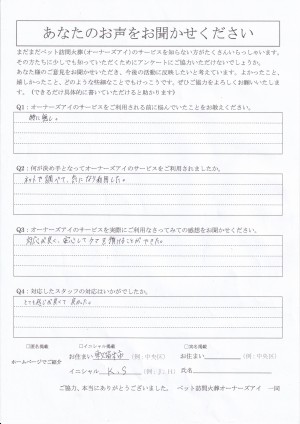 あなたのお声をお聞かせください
まだまだペット訪問火葬(オーナーズアイ)のサービスを知らない方がたくさんいらっしゃいます。
その方たちに少しでも知っていただくためにアンケートにご協力いただけないでしょうか。
あなた様のご意見をお聞かせいただき、今後の活動に反映したいと考えています。よかったこと、
嬉しかったこと、どのような些細なことでもけっこうです。ぜひご協力をよろしくお願いいたします。
(できるだけ具体的に書いていただけると助かります)
Q1:オーナーズアイのサービスをご利用される前に悩んでいたことをお教えください。
特に無し。
Q2:何が決め手となってオーナーズアイのサービスをご利用されましたか。
ネットで調べて、気になり利用した。
Q3:オーナーズアイのサービスを実際にご利用なさってみての感想をお聞かせください。
対応が良く、安心して
預けることができた。
Q4:対応したスタッフの対応はいかがでしたか。
とても感じが良くて 良かった。
□匿名掲載 □イニシャル掲載 □実名掲載
ホームページでご紹介
お住まい (例:中央区) お住まい (例:中央区)
イニシャル K.S (例:S.H) 氏名
ご協力、本当にありがとうございました。 ペット訪問火葬オーナーズアイ 一同